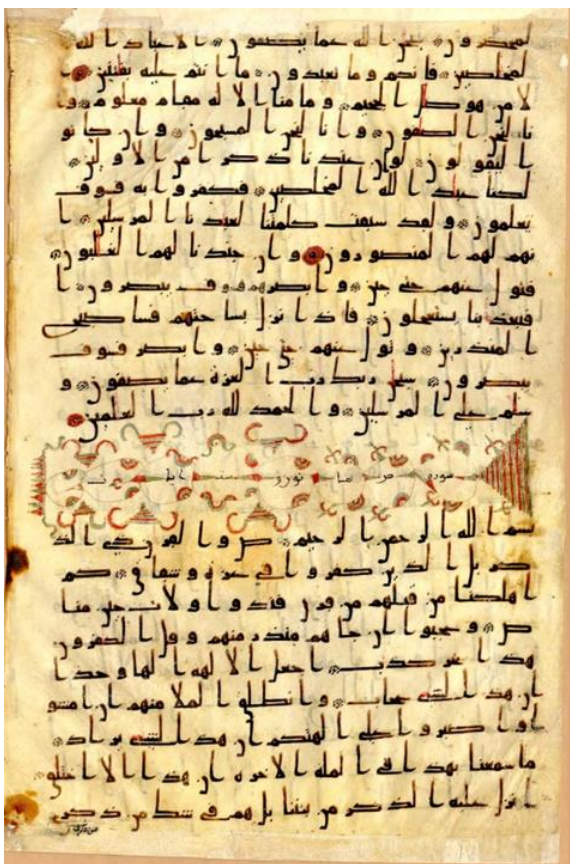 لمحضرون سبحن الله عما يصفون الا عباد الله
المخلصين فانكم وما تعبدون ما انتم عليه بفتنين ا
لا من هو صال الجحيم وما منا الا له مقام معلوم وا
نا لنحن الصفون وانا لنحن المسبحون وان كانو
ا ليقولون لو ان عندنا ذكرا من الاولين
لكنا عباد الله المخلصين فكفروا به فسوف
يعلمون ولقد سبقت كلمتنا لعبدنا المرسلين ا
نهم لهم المنصورون وان جندنا لهم الغلبون
فتول عنهم حتى حين وابصرهم فسوف يبصرون ا
فبعذبنا يستعجلون فاذا نزل بساحتهم فسا صبح
المنذرين وتول عنهم حتى حين وابصر فسوف
يبصرون سبحن ربك رب العزة عما يصفون و
سلم على المرسلين والحمد لله رب العلمين
سورة
بسم الله الرحمن الرحيم ص والقران ذي الذ
كر بل الذين كفروا في عزة وشقاق كم
اهلكنا من قبلهم من قرن فنادوا ولات حين منا
ص وعجبوا ان جاهم منذر منهم وقال الكفرون
هذا سحر كذاب اجعل الالهة الها وحدا
ان هذا لشي عجاب وانطلق الملا منهم ان امشو
ا واصبروا على الهتكم ان هذا لشي يراد
ما سمعنا بهذا في الملة الاخرة ان هذا الا اختلق
انزل عليه الذكر من بيننا بل هم في شك من ذكري